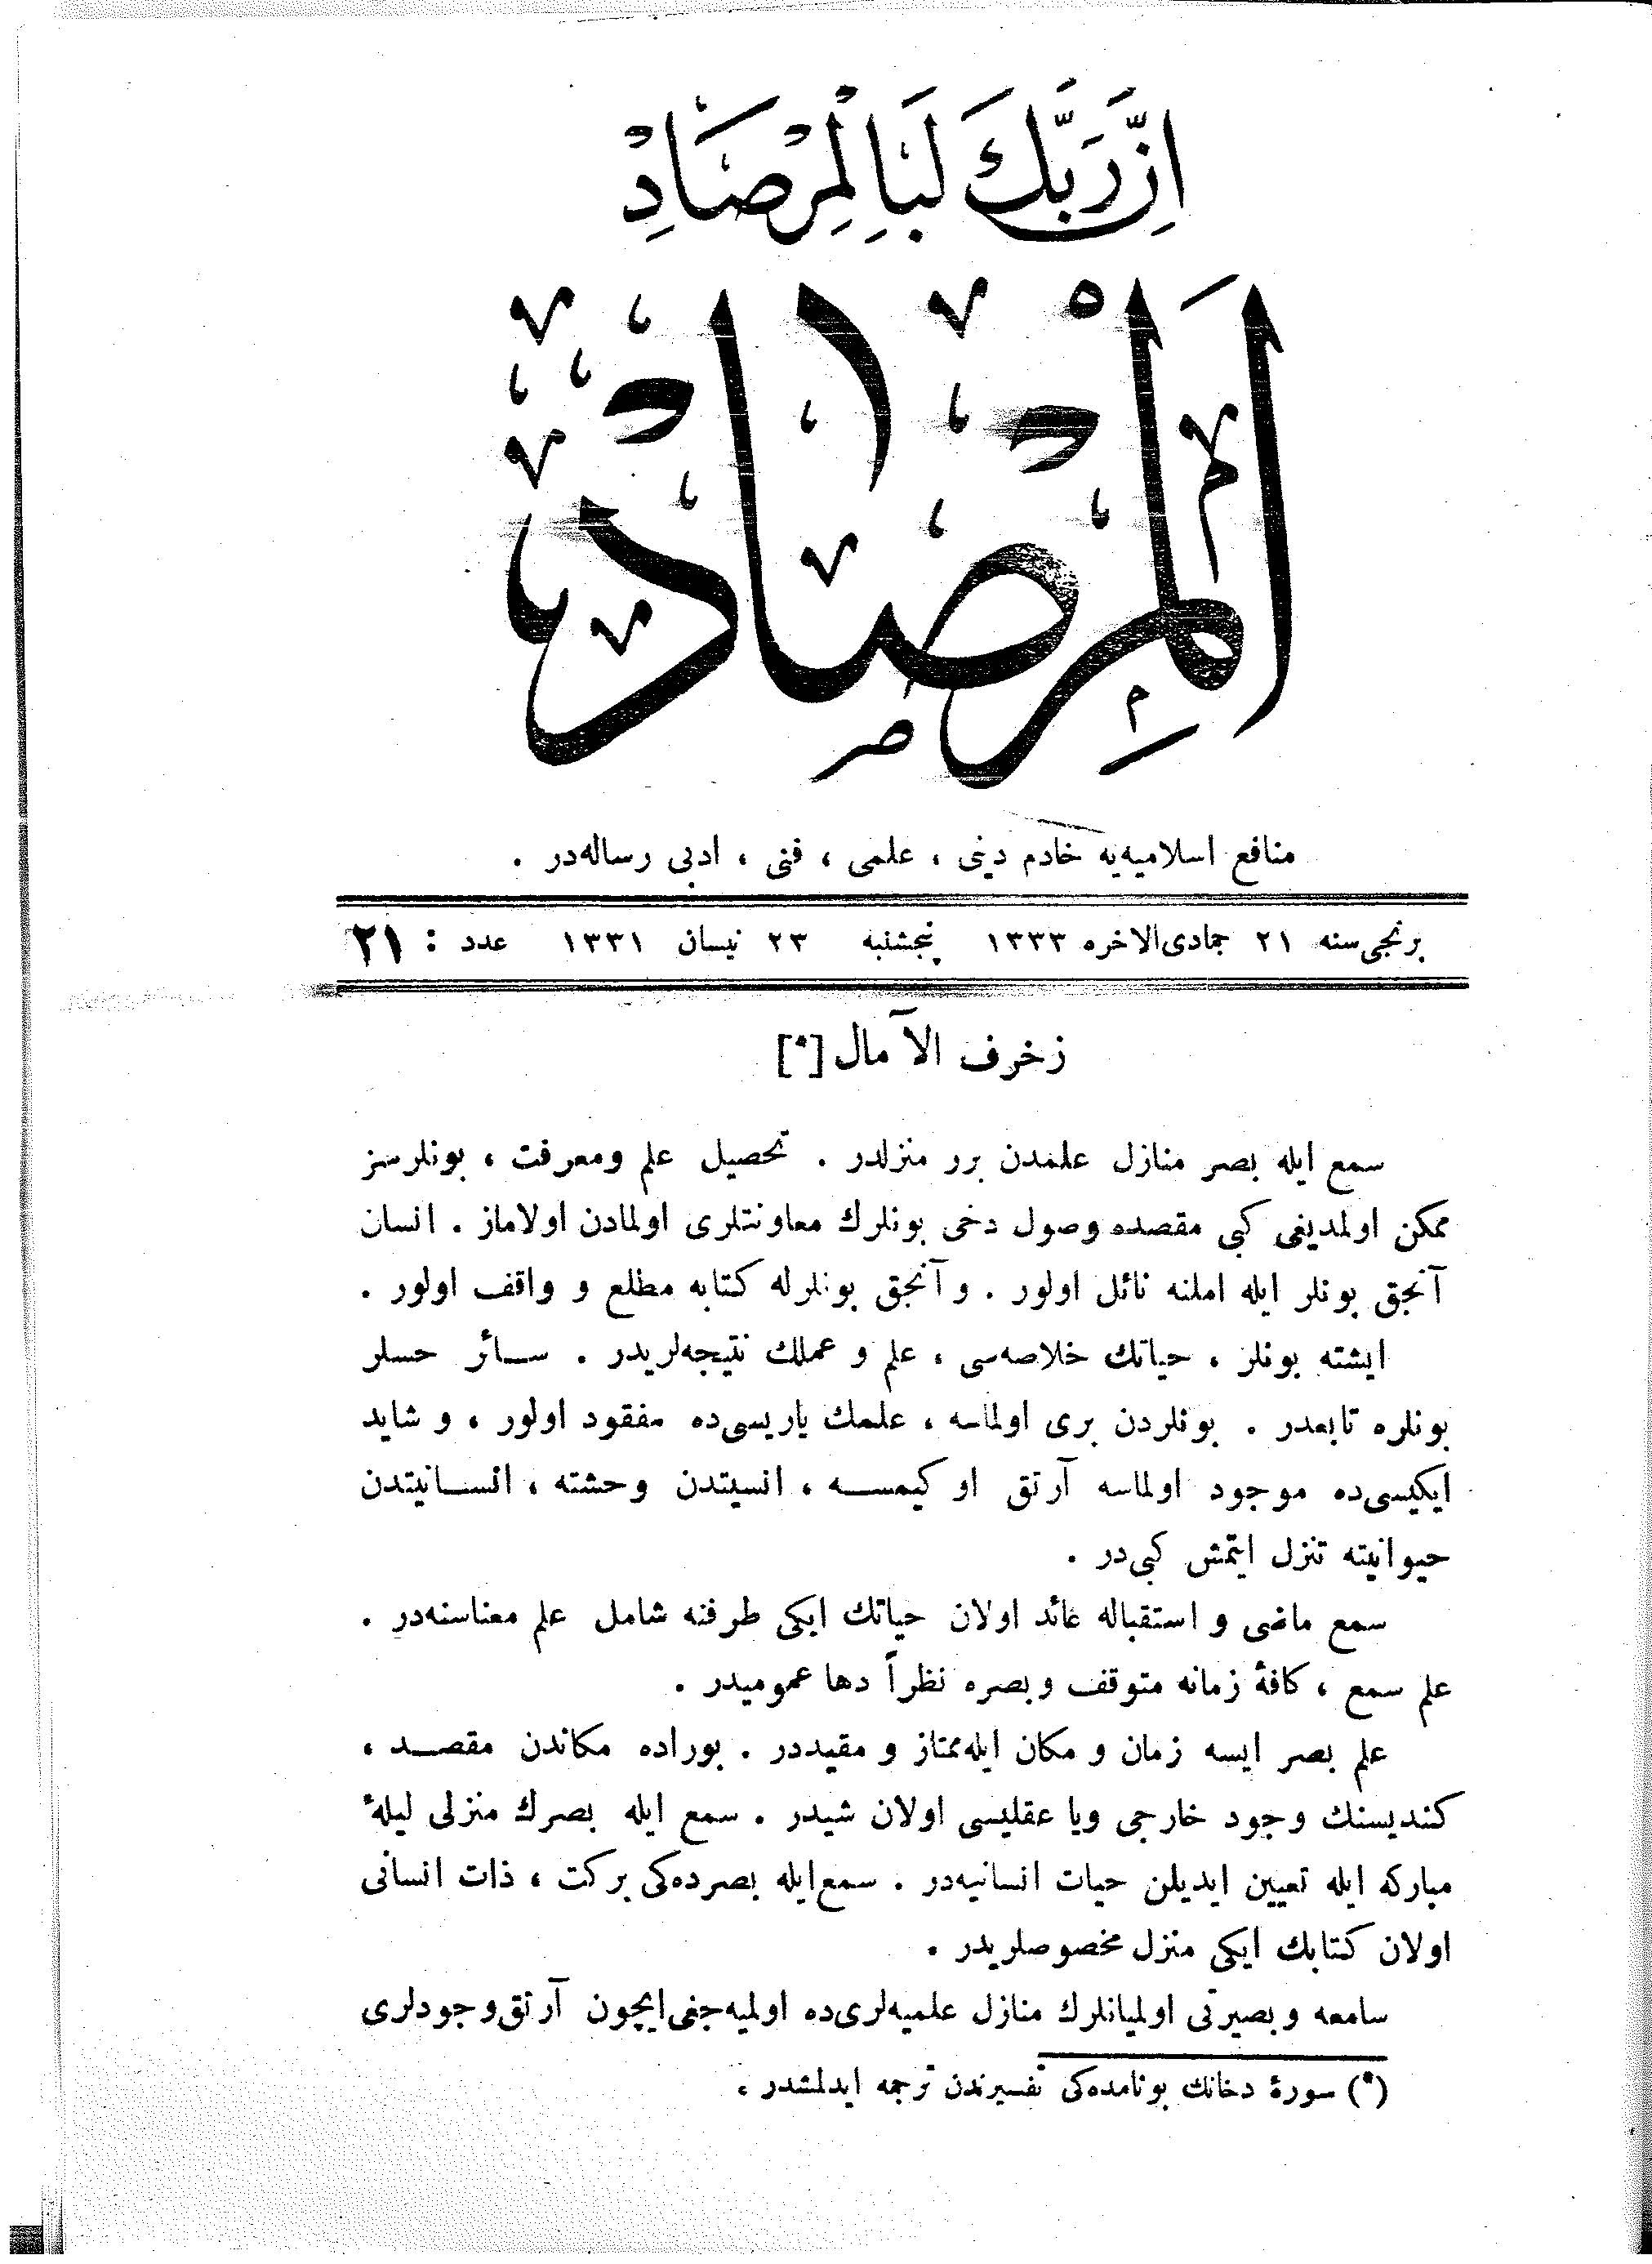 اِنَّ رَبَّكَ لَبَا لْمِرْصَادِ
اَلْمِرْصَادْ
منافع اسلاميه‌يه خادم دينى ، علمى ، فنى ، ادبى رساله‌در .
برنجى سنه ٢١ جمادى‌الاخره ١٣٣٣ پنجشنبه ٢٣ نيسان ١٣٣١ عدد : ٢١
زخرف الآمال [*]
سمع ايله بصر منازل علمدن برر منزلدر . تحصيل علم ومعرفت ، بونلرسز
ممكن اولمديغى كبى مقصده وصول دخى بونلرك معاونتلرى اولمادن اولاماز . انسان
آنجق بونلر ايله املنه نائل اولور . و آنجق بونلرله كتابه مطلع و واقف اولور .
ايشته بونلر ، حياتك خلاصه‌سى ، علم و عملك نتيجه‌لريدر . سائر حسلر
بونلره تابعدر . بونلردن برى اولماسه ، علمك ياريسى‌ده مفقود اولور ، و شايد
ايكيسى‌ده موجود اولماسه آرتق او كيمسه ، انسيتدن وحشته ، انسانيتدن
حيوانيته تنزل ايتمش كبى‌در .
سمع ماضى و استقباله عائد اولان حياتك ايكى طرفنه شامل علم معناسنه‌در .
علم سمع ، كافهٔ زمانه متوقف وبصره نظراً دها عموميدر .
علم بصر ايسه زمان و مكان ايله‌ممتاز و مقيددر . بوراده مكاندن مقصد ،
كنديسنك وجود خارجى ويا عقليسى اولان شيدر . سمع ايله بصرك منزلى ليلهٔ
مباركه ايله تعيين ايديلن حيات انسانيه‌در . سمع‌ايله بصرده‌كى بركت ، ذات انسانى
اولان كتابك ايكى منزل مخصوصلريدر .
سامعه وبصيرتى اوليانلرك منازل علميه‌لرى‌ده اولميه‌جغى‌ايچون آرتق‌وجودلرى
(*) سورهٔ دخانك بونامده‌كى تفسيرندن ترجمه ايدلمشدر .